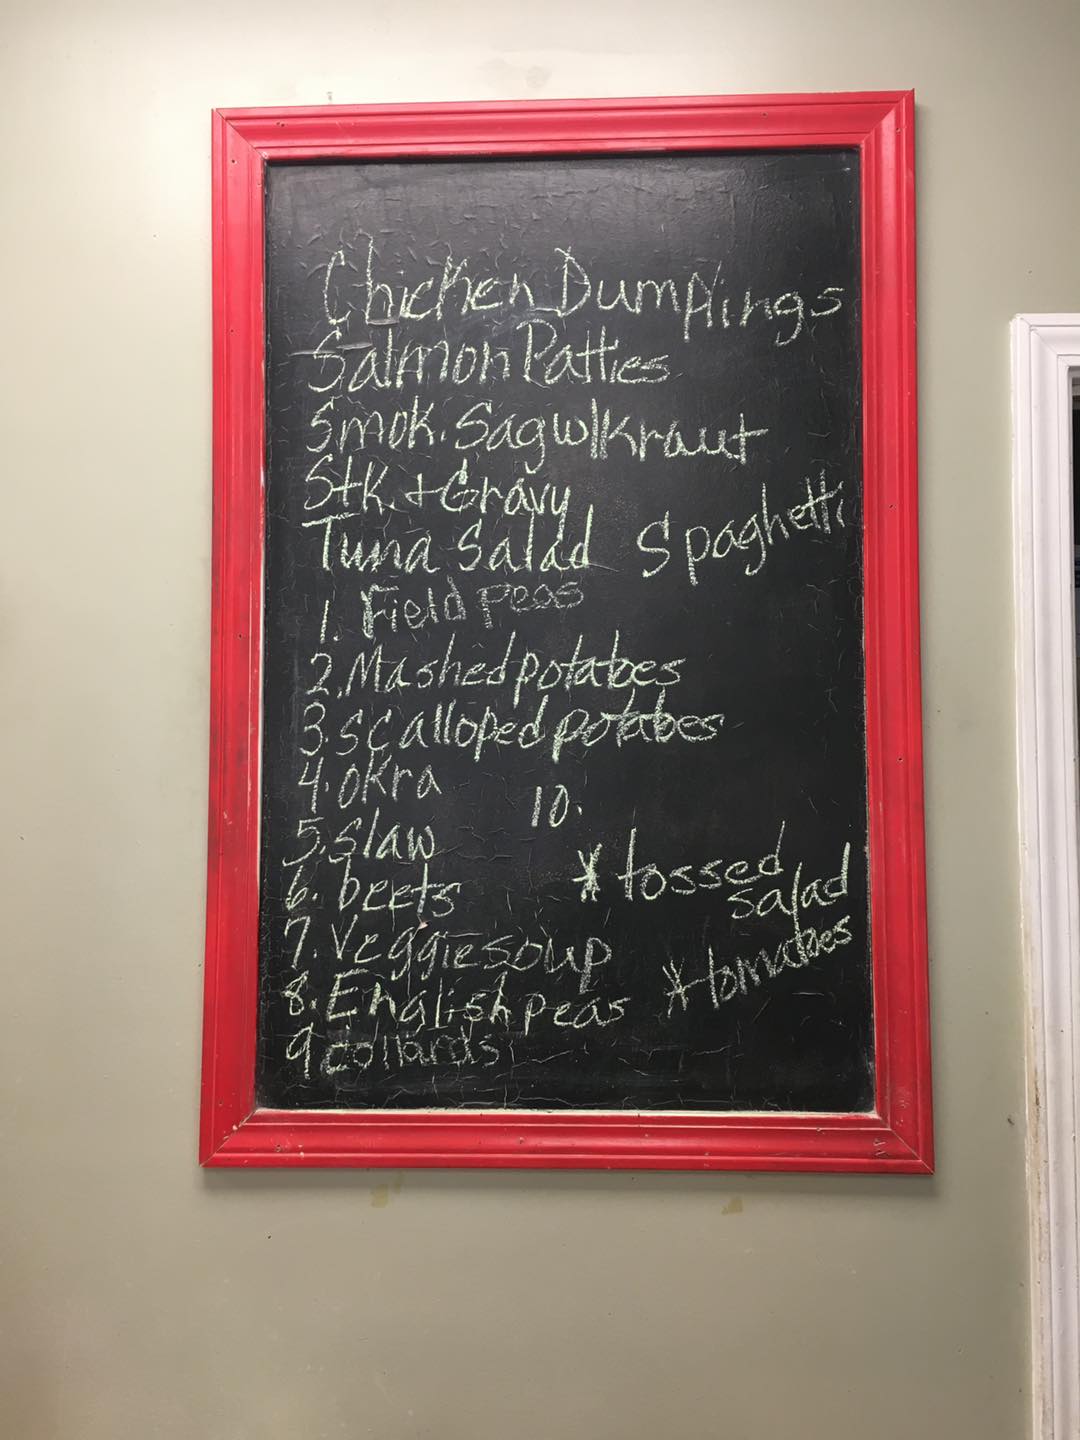 Chicken Dumplings
Salmon Patties
Smok. Sag w/Kraut
Stk. + Gravy
Tuna Salad Spaghetti
1. Field peas
2. Mashed potatoes
3. scalloped potatoes
4. okra
10.
5. slaw
* tossed
salad
6. beets
7. Veggie soup
* tomatoes
8. English peas
9 collards